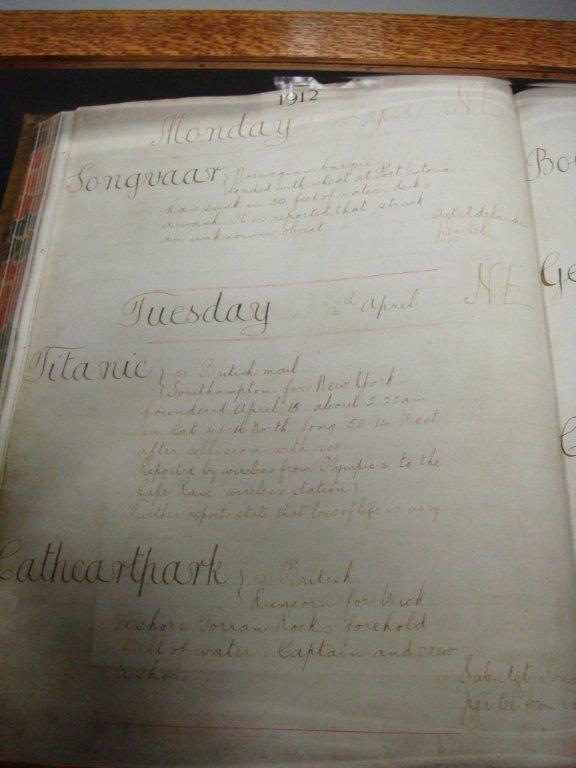 1912
Monday 15th April NE
Songvaar } Norwegian barque
loaded with wheat at Port Victoria
has sunk in 30 feet of water, decks
awash. It is reported that struck
an unknown object
Agt Adelaide
per tel
Tuesday 16th April NE
Titanic } British mail
Southampton for New York
foundered April 15 about 2.20am
in lat 41.16 North long 50.14 West
after collision with ice
(Reported by wireless from Olympic to the
Cape Race wireless station)
Further reports state that loss of life is very
Cathcartpark } British
Runcorn for Wick
ashore Torran Rocks forehold
full of water. Captain and crew
ashore
Sub. Agt
per tel from
Bo
Ge